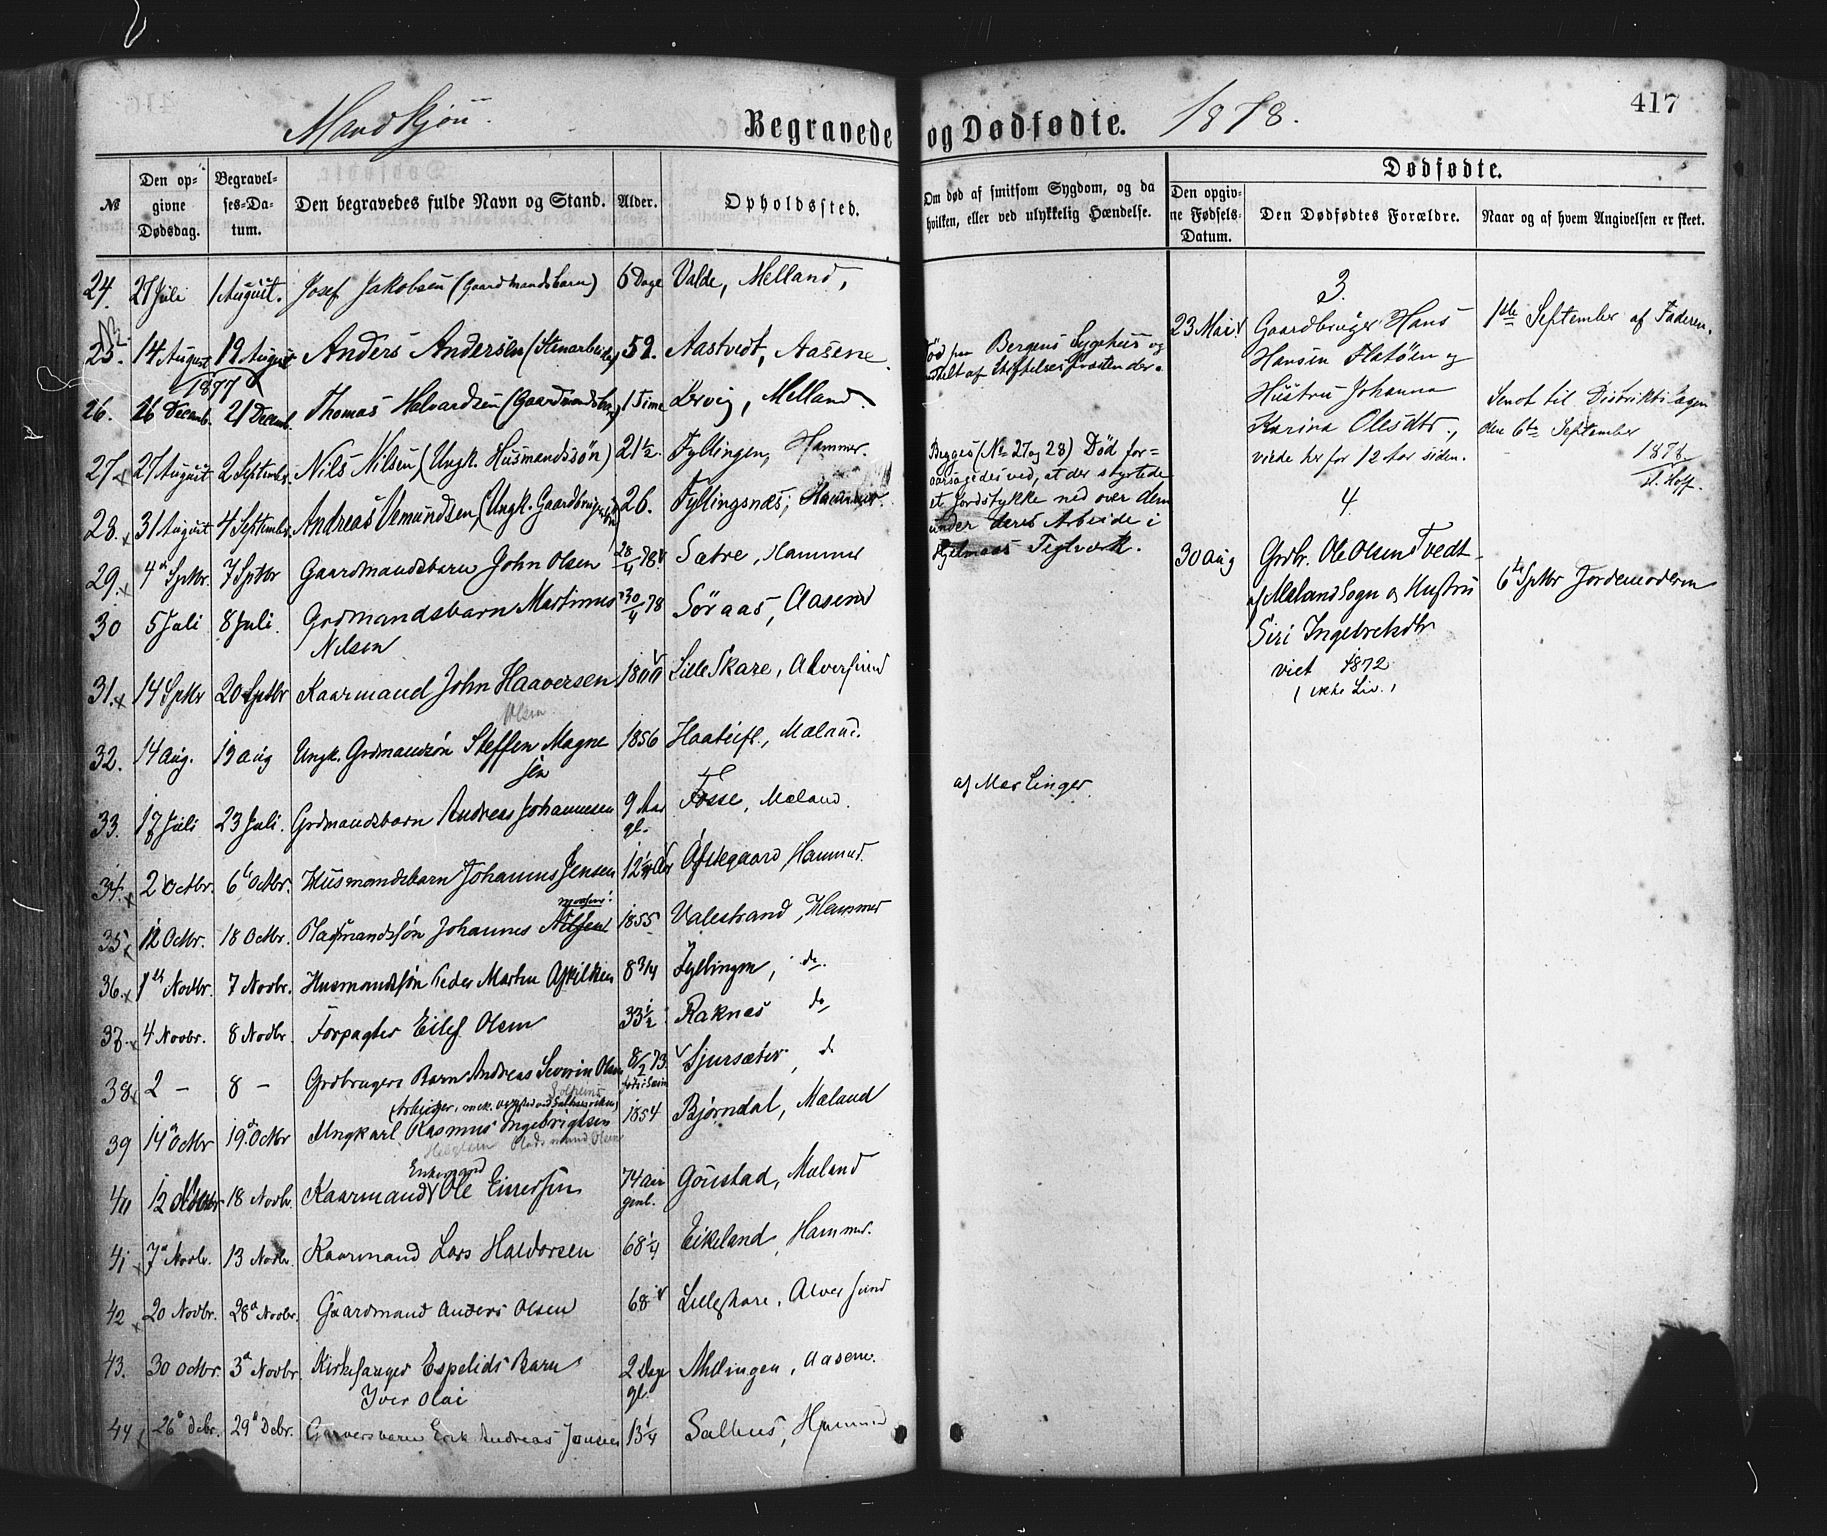 Mandkjøn. Begravede og Dødfødte. 1878. 417
№ Den opgivne Dødsdag. Begravelses-Datum. Den begravedes fulde Navn og Stand. Alder. Opholdssted.
Om død af smitsom Sygdom, og da hvilken, eller ved ulykkelig Hændelse.
Dødfødte.
Den opgivne Fødsels-Datum. Den Dødfødtes Forældre. Naar og af hvem Angivelsen er skeet.
24. 27 Juli 1 August. Josef Jakobsen (Gaardmandsbarn) 6 Dage Valde, Melland,
25. 14 August 19 August Anders Andersen (Stenarbeider) 59. Aastvedt, Aasene.
1877
26. 16 Decemb. 21 Decemb. Thomas Halvardsen (Gaardmandsbarn) 1 Time Lervig, Melland.
27 27 August 2 September Nils Nilsen (Ungk. Husmandssøn) 21½. Fyllingen, Hammer.
28. 31 August 4 September Andreas Vemundsen, (Ungk. Gaardbrugersøn) 26. Fyllingsnæs, Hammer.
29. 4 Sptbr. 7 Sptbr Gaardmandsbarn John Olsen 28/4 78 Sætre, Hammer
30 5 Juli 8 Juli. Grdmandsbarn Martinus 30/4 78 Søraas, Aasene
Nilsen
31. 14 Sptbr 20 Sptbr Kaarmand John Haaversen 1800 Lille Skare, Alversund
Olsen
32. 14 Aug. 19 Aug Ungk. Grdmandsøn Steffen Magne 1856 Mæland.
sen
33. 17 Juli 23 Juli. Grdmandsbarn Andreas Johannesen 9 Aar Fosse, Mæland.
gl.
34. 2 Octbr. 6 Octbr. Husmandsbarn Johannes Jensen 12¼ Aar Hammer.
35 12 Octbr. 18 Octbr. Pladsmandssøn Johannes Nilsen 1855 Valestrand, Hammer
36. 1 Novbr. 7 Novbr. Husmandssøn Peder Martin Askildsen 8 3/4 Fyllingen, do.
37. 4 Novbr. 8 Novbr. Forpagter Eilef Olsen 33½ Raknæs do
38 2 – 8 – Grdbrugers Barn Andreas Severin Olsen 8/2 73 Sjursæter, d
39 14 Octbr 19 Octbr Ungkarl Rasmus Ingebrigtsen 1854 Bjørndal, Mæland
Enkemand
40 12 Novbr 18 Novbr. Kaarmand Ole Einersen 74 Aar Mæland
gml.
41 7 Novbr. 13 Novbr. Kaarmand Lars Haldorsen 68¼ Eikeland, Hammer.
42 20 Novbr. 28 Novbr. Gaardmand Anders Olsen 68 Lilleskare, Alversund
43. 30 Octbr. 3 Novbr. Kirkesanger Espelids Barn 2 Dage Aasene.
Iver Olai gl.
44 26 Decbr. 29 Decbr. Garversbarn Erik Andreas Jonsen 13¼ Salhus, Hammer
Død paa Bergens Sygehus og
Begges (№ 27 og 28) Død for-
aarsagedes ved, at der styrtede
et Jordstykke ned over dem
under deres Arbeide i
Teglværk.
af Meslinger.
3.
23 Mai Gaardbruger Hans 1ste September af Faderen.
Hansen Flatøen og
Hustru Johanna
Karina Olesdtr.,
viede her for 12 Aar siden.
Sendt til Distriktslægen
den 6te September
1878
4
30 Aug Grdbr. Ole Olsen Tvedt 6 Sptbr Jordemoderen
af Mæland Sogn og Hustru
Siri Ingebrektsdtr
viet 1872
(ikke Liv.)